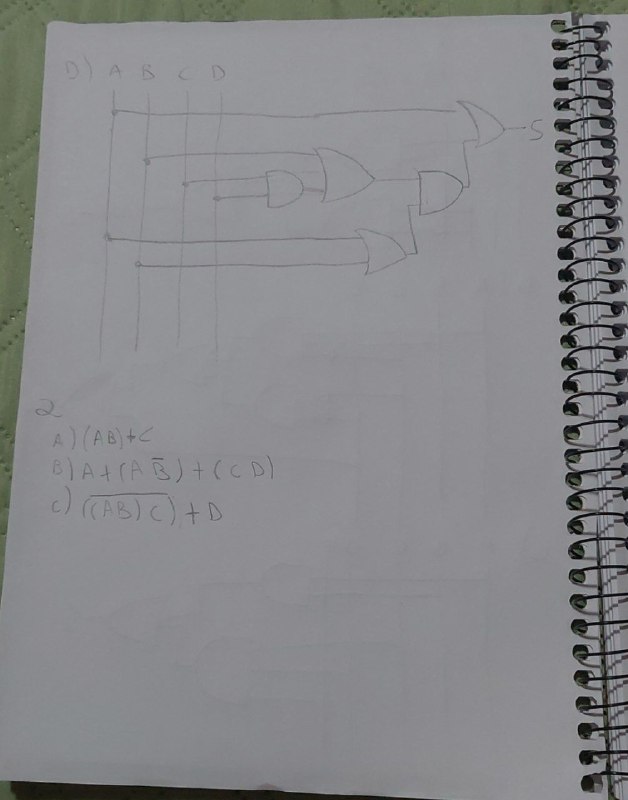 D) A B C D
S
2
A) (AB)+C
B) A+(AB̅)+(CD)
C) (̅(̅A̅B̅)̅C̅)+D